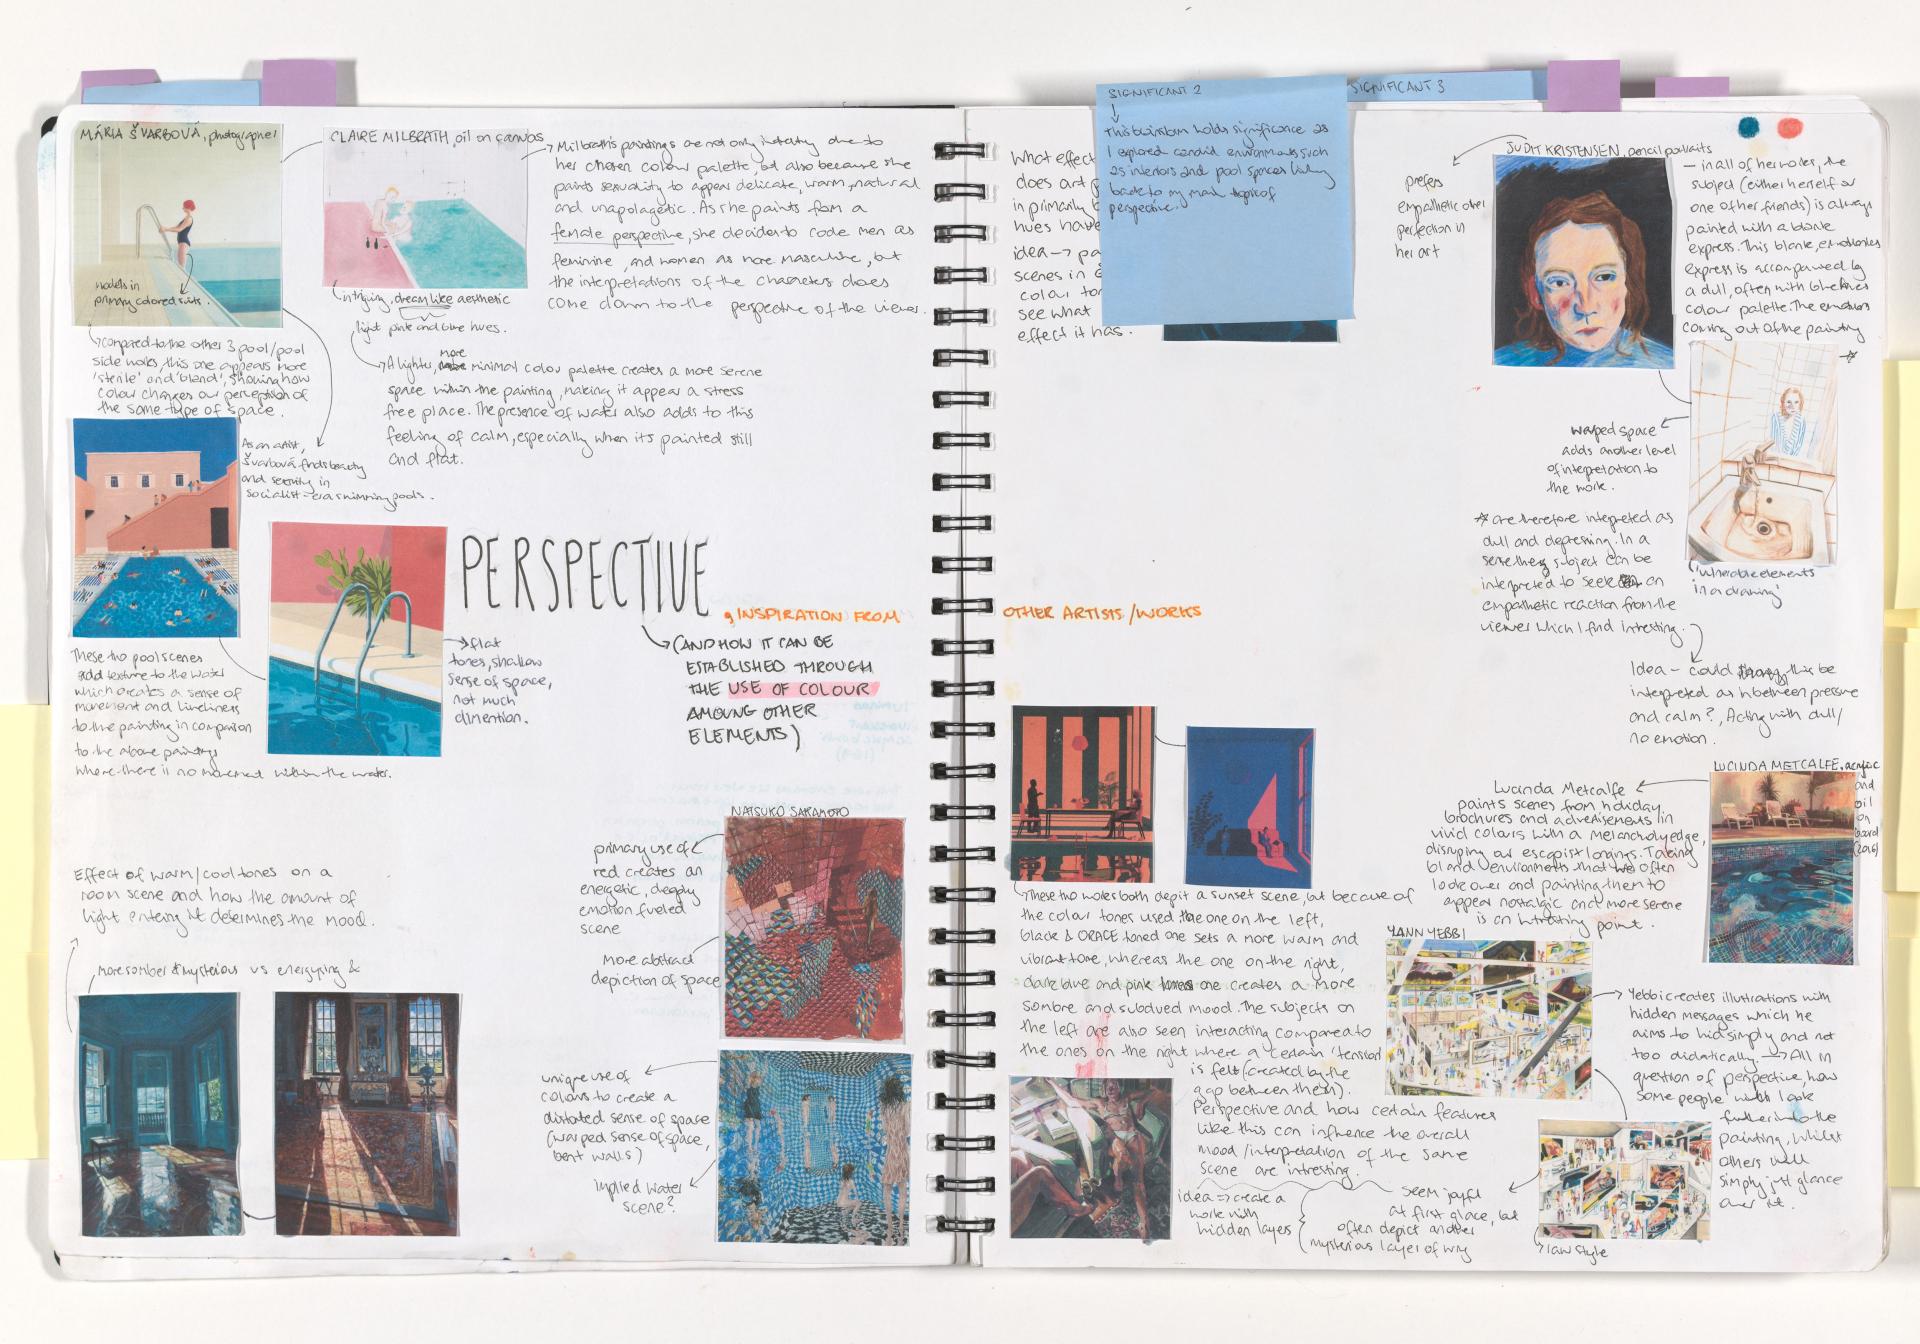 MÁRIA ŠVARBOVÁ, photographer
models in
primary colored suits.
compared to the other 3 pool/pool
side works, this one appears more
'sterile' and 'bland', showing how
colour changes our perception of
the same type of space.
As an artist,
Švarbová finds beauty
and serenity in
socialist-era swimming pools.
CLAIRE MILBRATH, oil on canvas
intriging, dream like aesthetic
light pink and blue hues.
Milbrath's paintings are not only intersting due to
her chosen colour palette, but also because she
paints sexuality to appear delicate, warm, natural
and unapologetic. As she paints from a
female perspective, she decides to code men as
feminine, and women as more masculine, but
the interpretations of the characters does
come down to the perspective of the viewer.
A lighter, more minimal colour palette creates a more serene
space within the painting, making it appear a stress
free place. The presence of water also adds to this
feeling of calm, especially when its painted still
and flat.
flat
tones, shallow
sense of space,
not much
dimention.
These two pool scenes
add texture to the water
which creates a sense of
movement and liveliness
to the painting in comparison
to the above paintings
where there is no movement within the water.
PERSPECTIVE
, INSPIRATION FROM OTHER ARTISTS/WORKS
(AND HOW IT CAN BE
ESTABLISHED THROUGH
THE USE OF COLOUR
AMOUNG OTHER
ELEMENTS)
Effect of warm/cool tones on a
room scene and how the amount of
light entering it determines the mood.
more somber & mysterious vs energying &
NATSUKO SAKAMOTO
primary use of
red creates an
energetic, deeply
emotion fueled
scene
More abstract
depiction of space
unique use of
colours to create a
distorted sense of space
(warped sense of space,
bent walls)
implied water
scene?
What effect
does art
in primarily
hues have
idea → 
scenes in
colour
see what
effect it has.
SIGNIFICANT 2
This brainstorm holds significance as
I explored candid environments such
as interiors and pool spaces linking
back to my main topic of
perspective.
SIGNIFICANT 3
JUDIT KRISTENSEN, pencil portraits
prefers
empathetic over
perfection in
her art
- in all of her works, the
subject (either herself or
one of her friends) is always
painted with a blank
express. This blank, emotionless
express is accompanied by
a dull, often with blue hues
colour palette. The emotions
coming out of the painting
warped space
adds another level
of interpretation to
the work.
are therefore interpreted as
dull and depressing. In a
sense the subject can be
interpreted to seek an
empathetic reaction from the
viewer which I find intresting.
'vulnerable elements
in a drawing'
Idea - could this be
interpreted as inbetween pressure
and calm?, Acting with dull/
no emotion.
LUCINDA METCALFE, acrylic
and
oil
on
board
(2016)
Lucinda Metcalfe
paints scenes from holiday
brochures and advertisements in
vivid colours with a melancholy edge,
disrupting our escapist longings. Taking
bland environments that we often
look over and painting them to
appear nostalgic and more serene
is an intresting point.
These two works both depit a sunset scene, but because of
the colour tones used, the one on the left,
black & ORAGE toned one sets a more warm and
vibrant tone, whereas the one on the right,
dark blue and pink one creates a more
sombre and subdued mood. The subjects on
the left are also seen interacting compared to
the ones on the right where a certain 'tension'
is felt (created by the
gap between them).
Perspective and how certain features
like this can influence the overall
mood/interpretation of the same
scene are intresting.
idea ⇒ create a
work with
hidden layers
YANN KEBBI
Kebbi creates illustrations with
hidden messages which he
aims to hid simply and not
too didatically. → All in
question of perspective, how
some people will look
further into the
painting, whilst
others will
simply just glance
over it.
seem joyful
at first glace, but
often depict another
mysterious layer of
raw style